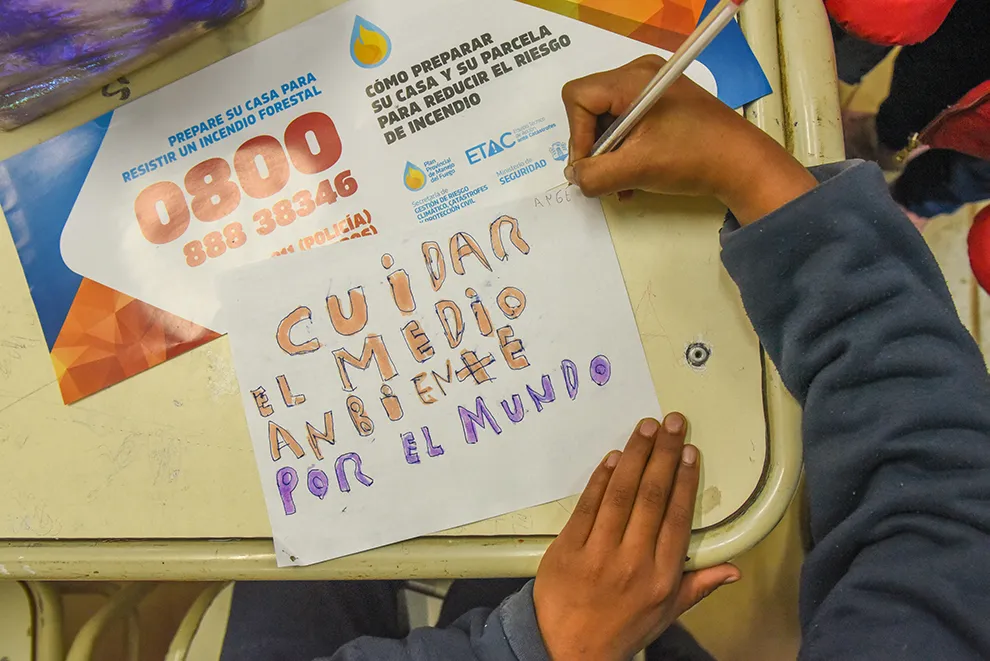 PREPARE SU CASA PARA
RESISTIR UN INCENDIO FORESTAL
0800
888 38346
911 (POLICÍA)
CÓMO PREPARAR
SU CASA Y SU PARCELA
PARA REDUCIR EL RIESGO
DE INCENDIO
Plan
Provincial
de Manejo
del Fuego
ETAC
ante Catástrofes
Secretaría de
GESTIÓN DE RIESGO
CLIMÁTICO, CATÁSTROFES
Y PROTECCIÓN CIVIL
Ministerio de
SEGURIDAD
CUIDAR
EL MEDIO
ANBIENTE
POR EL MUNDO